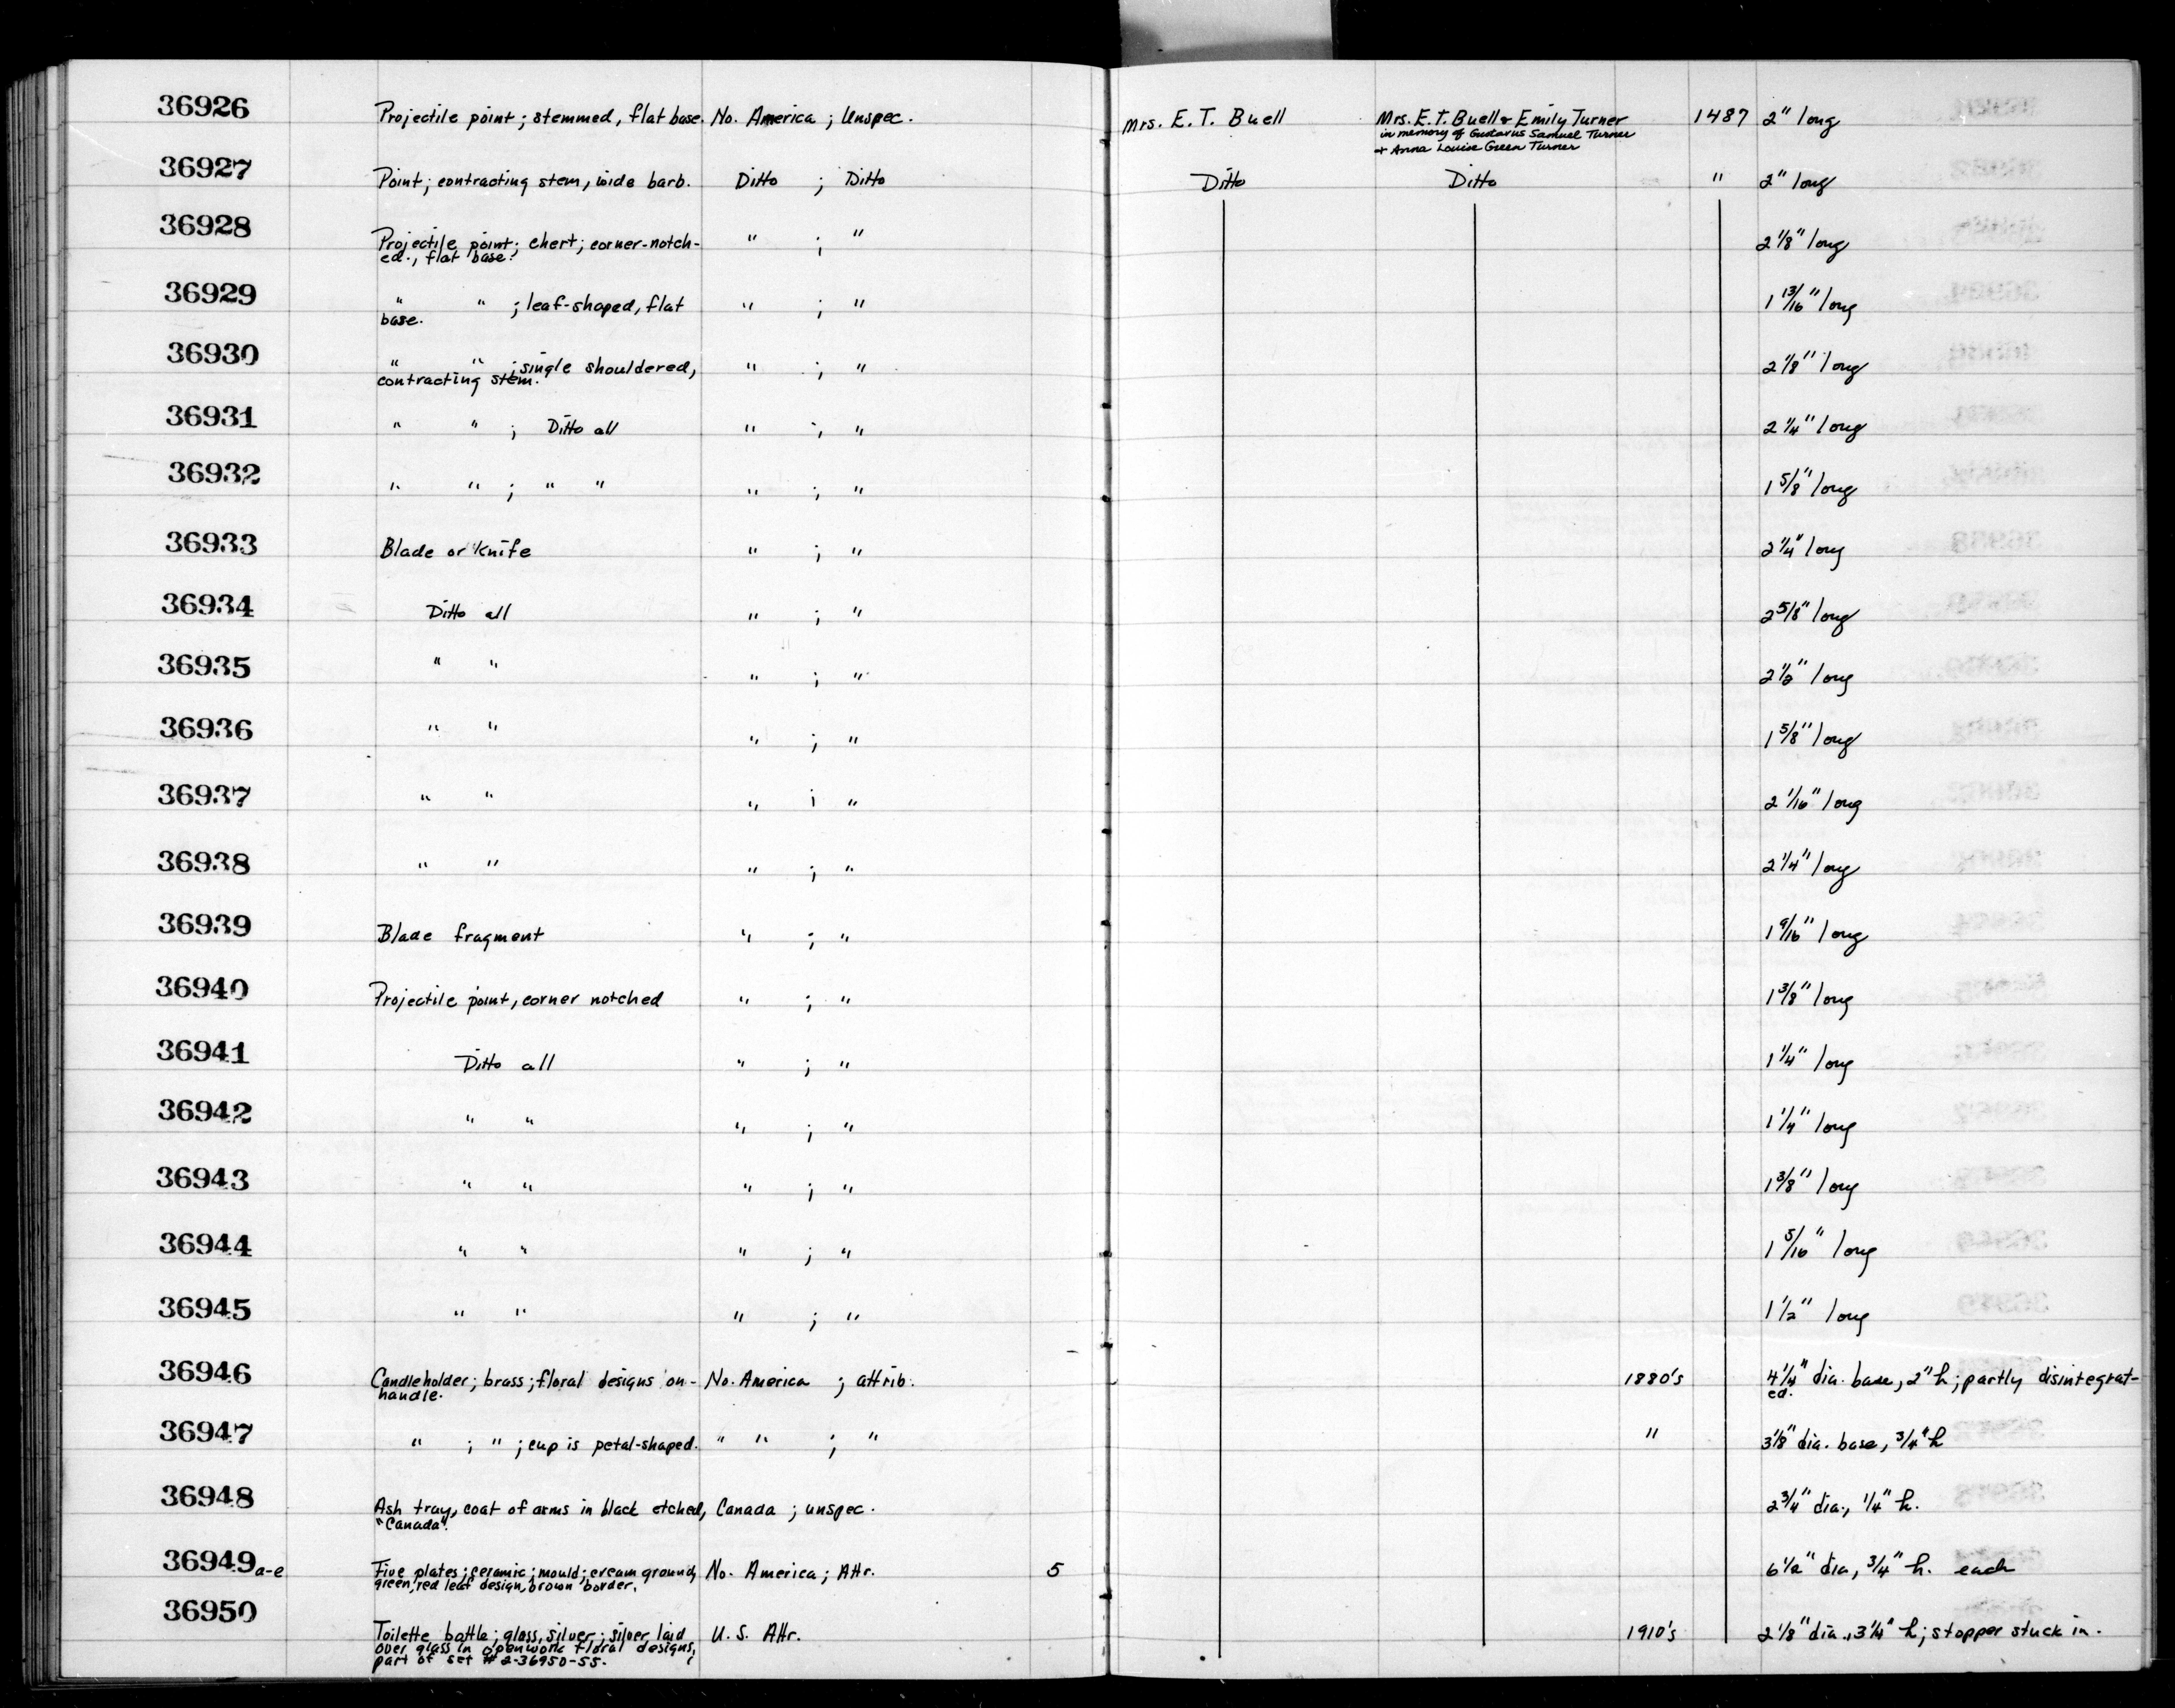 36926 Projectile point; stemmed, flat base. No. America ; Unspec. Mrs. E. T. Buell Mrs. E. T. Buell & Emily Turner 1487 2" long
in memory of Gustavus Samuel Turner
+ Anna Louise Green Turner
36927 Point; contracting stem, wide barb. Ditto ; Ditto Ditto Ditto " 2" long
36928 Projectile point; chert; corner-notch- " ; " 2 1/8" long
ed., flat base.
36929 " " ; leaf-shaped, flat " ; " 1 13/16" long
base.
36930 " " ; single shouldered, " ; " 2 1/8" long
contracting stem.
36931 " " ; Ditto all " ; " 2 1/4" long
36932 " " ; " " " ; " 1 5/8" long
36933 Blade or Knife " ; " 2 1/4" long
36934 Ditto all " ; " 2 5/8" long
36935 " " " ; " 2 1/2" long
36936 " " " ; " 1 5/8" long
36937 " " " ; " 2 1/16" long
36938 " " " ; " 2 1/4" long
36939 Blade fragment " ; " 1 9/16" long
36940 Projectile point, corner notched " ; " 1 3/8" long
36941 Ditto all " ; " 1 1/4" long
36942 " " " ; " 1 1/4" long
36943 " " " ; " 1 3/8" long
36944 " " " ; " 1 5/16" long
36945 " " " ; " 1 1/2" long
36946 Candleholder; brass; floral designs on- No. America ; attrib. 1880's 4 1/4" dia. base, 2" h; partly disintegrat-
handle. ed.
36947 " ; " ; cup is petal-shaped. " " ; " " 3 1/8" dia. base, 3/4" h
36948 Ash tray, coat of arms in black etched, Canada ; unspec. 2 3/4" dia., 1/4" h.
"Canada".
36949 a-e Five plates; ceramic; mould; cream ground, No. America; Attr. 5 6 1/2" dia, 3/4" h. each
green, red leaf design, brown border.
36950 Toilette bottle; glass, silver; silver laid U. S. Attr. 1910's 2 1/8" dia., 3 1/4" h; stopper stuck in.
over glass in openwork floral designs,
part of set # 2-36950-55.